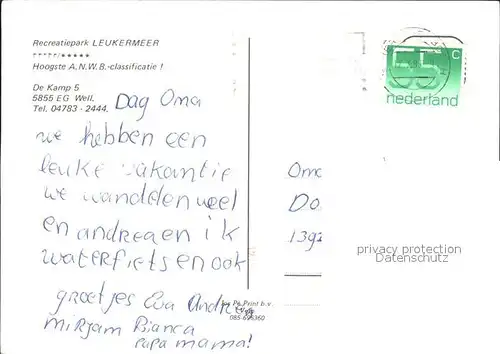 Recreatiepark LEUKERMEER
*****/*****
Hoogste A.N.W.B.-classificatie !
De Kamp 5
5855 EG Well.
Tel. 04783 - 2444.
Dag Oma
we hebben een
leuke vakantie
we wandelen veel
en andrea en ik
waterfietsen ook
groetjes Eva Andrea
Mirjam Bianca
papa mama!
c
55
nederland
Oma
Do
139
privacy protection
Datenschutz
Print b.v.